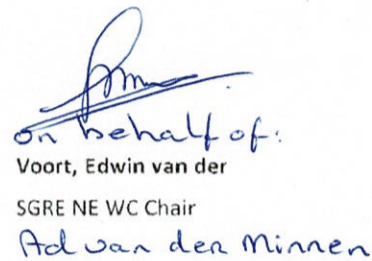 on behalf of:
Voort, Edwin van der
SGRE NE WC Chair
Ad van der Minnen